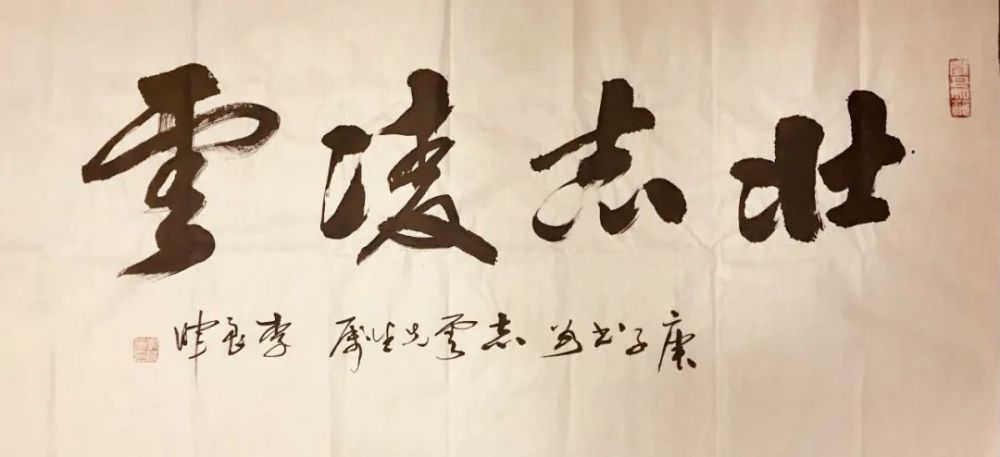 壮志凌雲
庚子书为志雲先生属 李良